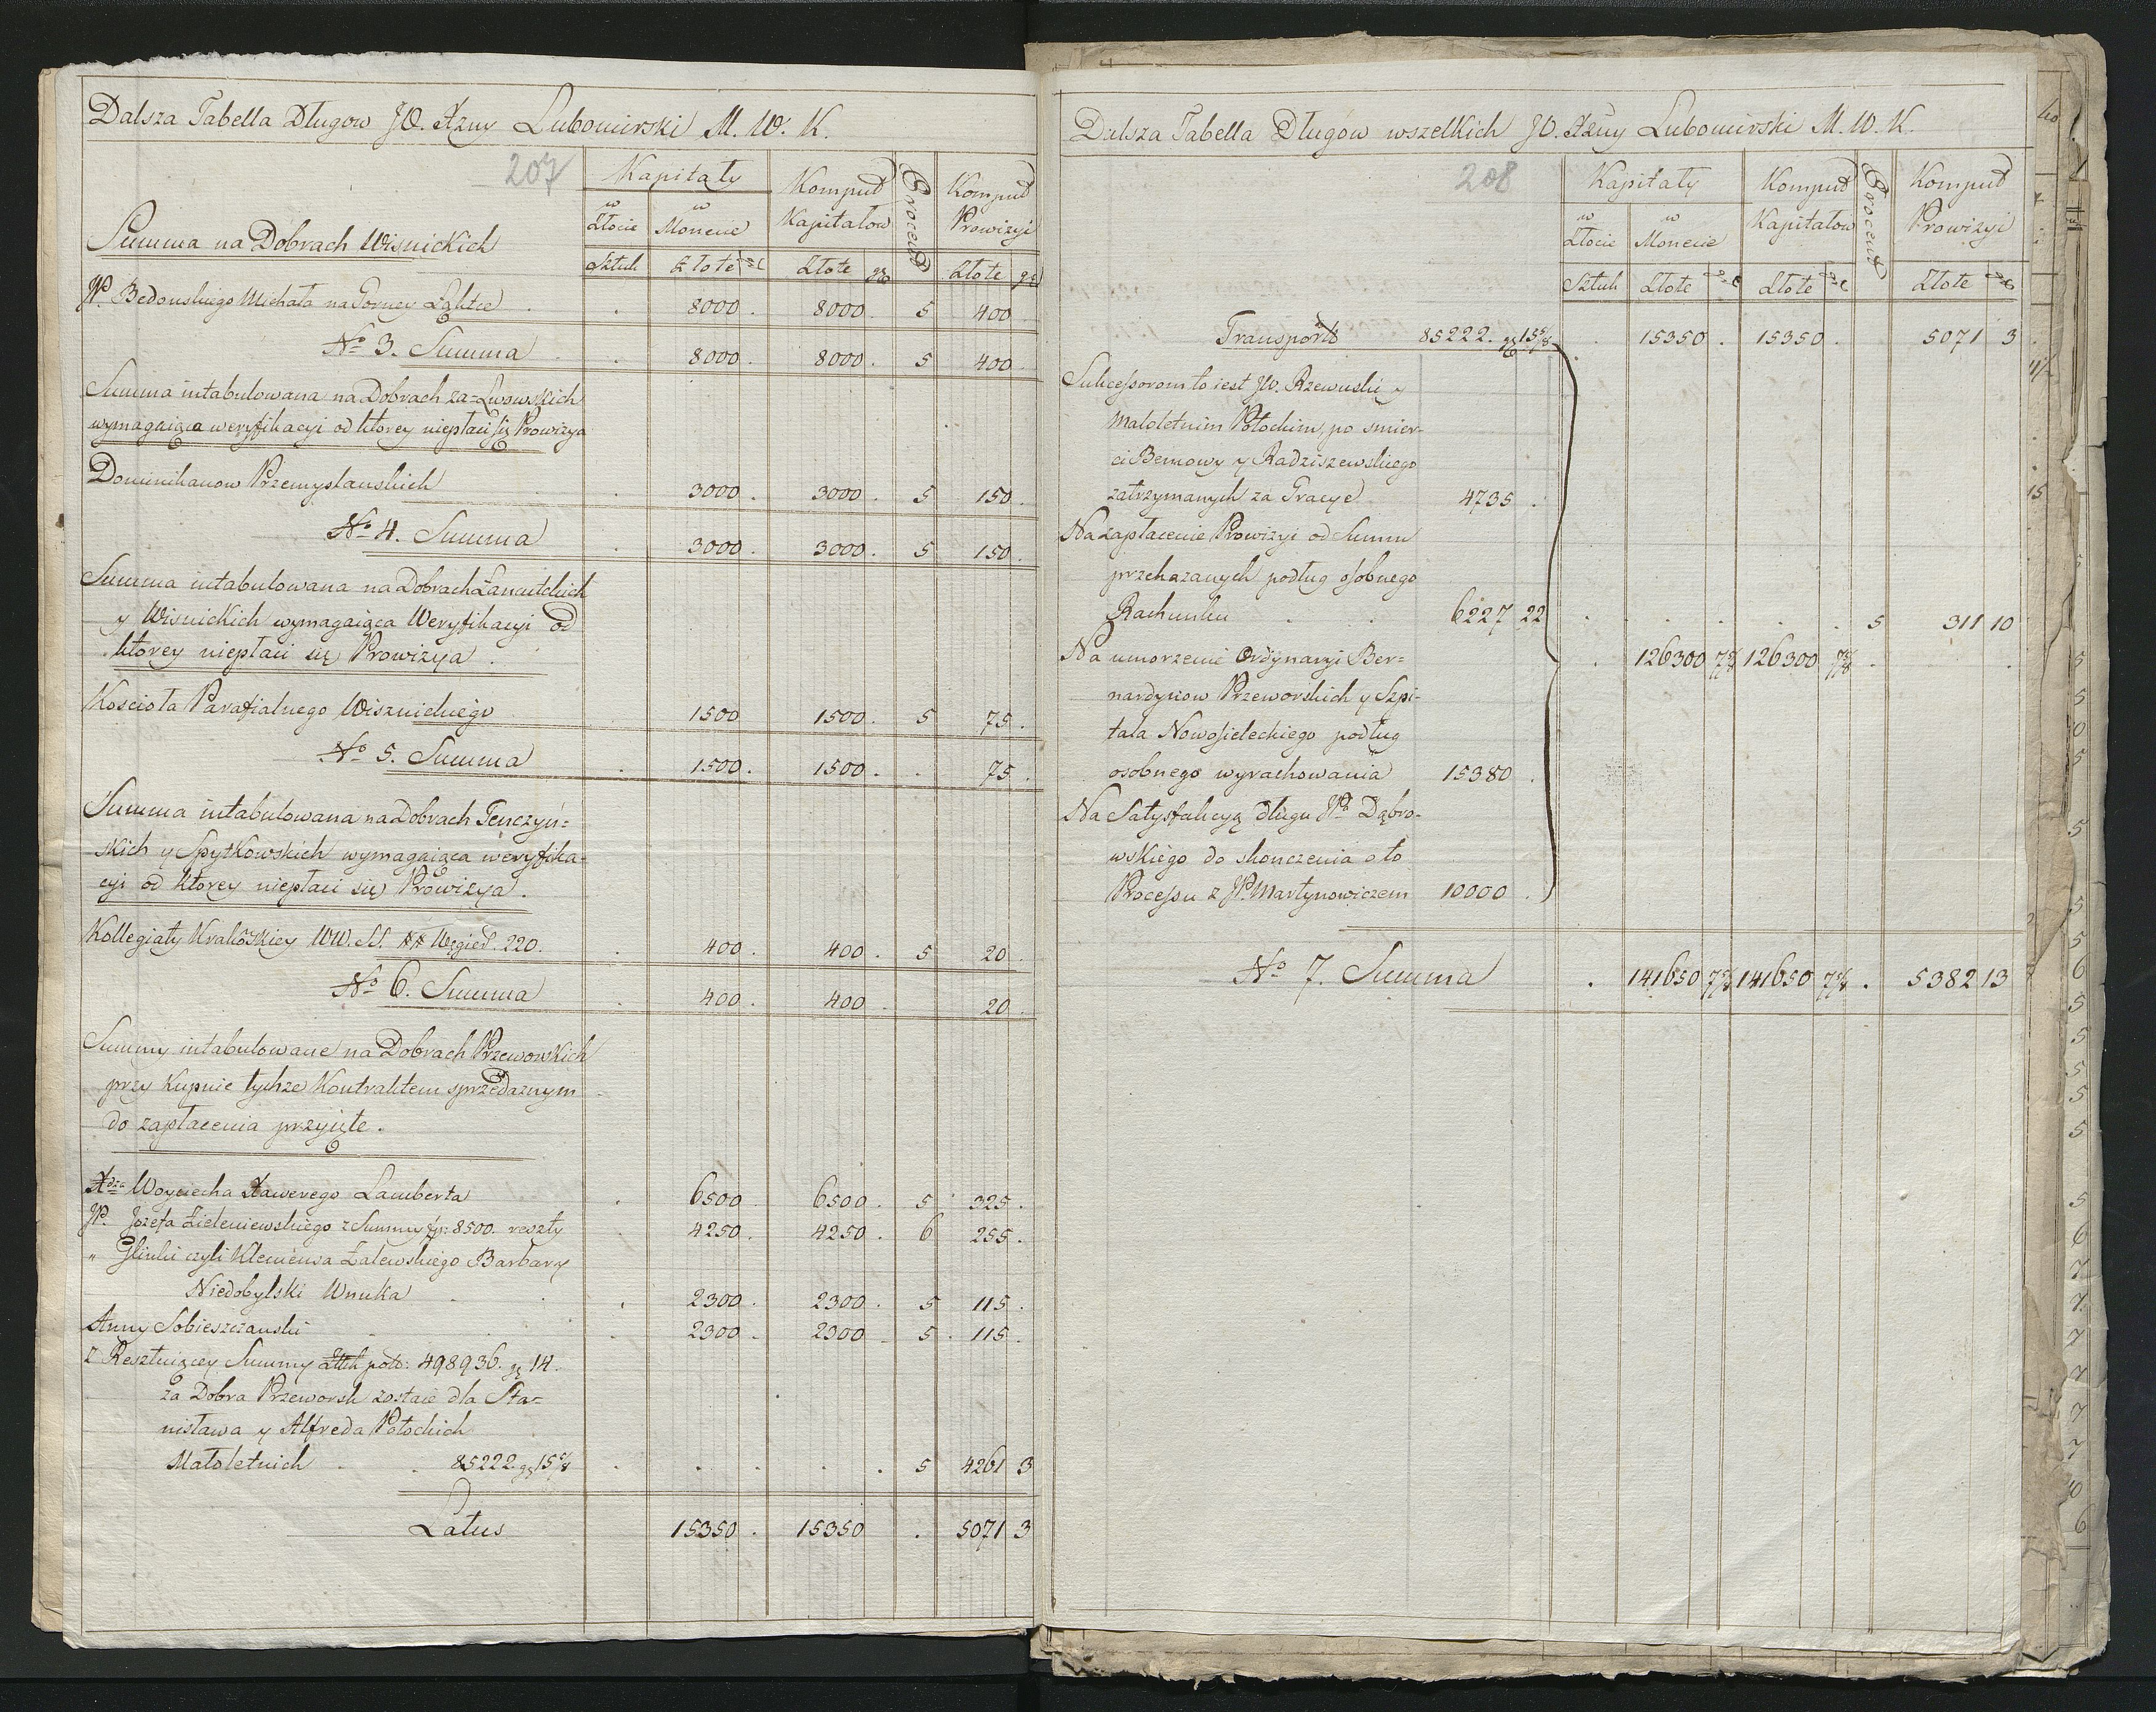 Dalsza Tabella Długow JO. Xżny Lubomirski M. W. K.
207
Kapitały Komput Procent Komput
w Złocie w Monecie Kapitałow Prowizyi
Sztuk Złote gr Złote gr Złote gr
Summa na Dobrach Wisnickich
JP. Bedonskiego Michała na Gorney . . 8000 . 8000 . 5 400 .
No 3. Summa . 8000 . 8000 . 5 400 .
Summa intabulowana na Dobrach za=Lwowskich
wymagaiąca weryfikacyi od ktorey niepłaci się Prowizya
Dominikanow Przemyslanskich . 3000 . 3000 . 5 150 .
No 4. Summa . 3000 . 3000 . 5 150 .
Summa intabulowana na Dobrach Lancutckich
y Wisnickich wymagaiąca Weryfikacyi od
ktorey niepłaci się Prowizya .
Kosciola Parafialnego Wisznickiego 1500 1500 . 5 75 .
No 5. Summa . 1500 . 1500 . . 75 .
Summa intabulowana na Dobrach Tenczyń=
skich y Spytkowskich wymagaiąca weryfika=
cyi od ktorey niepłaci się Prowizya .
Kollegiaty Krakowskiey WW. SS. ## Węgier. 220. . 400 . 400 . 5 20 .
No 6. Summa . 400 . 400 . 20 .
Summy intabulowane na Dobrach Przeworskich
przy Kupnie tychze Kontraktem sprzedaznym
do zapłacenia przyięte .
Xdza Woyciecha Xawerego Lamberta . 6500 6500 . 5 325 .
JP. Jozefa Zieleniewskiego z Summy fp: 8500. reszty 4250 . 4250 . 6 255 .
" Glinki czyli Klemensa Zalewskiego Barbary
Niedobylski Wnuka . . . 2300 . 2300 . 5 115 .
Anny Sobieszczanski . . . 2300 . 2300 . 5 . 115 .
Z Resztuiącey Summy polo: 498936. gr 14.
za Dobra Przeworsk zostaie dla Sta=
nisława y Alfreda Potockich
Małoletnich . . 85222. gr 15 5/8 . . . . . 5 4261 3
Latus 15350 . 15350 . 5071 3
Dalsza Tabella Długow wszelkich JO. Xżny Lubomirski M. W. K.
208
Kapitały Komput Procent Komput
w Złocie w Monecie Kapitałow Prowizyi
Sztuk Złote gr Złote gr Złote gr
Transport 85222. gr 15 5/8 . 15350 . 15350 . 5071 3
Sukcessorom to iest JW. Rzewuski y
Małoletnim Potockim, po smier=
ci Bemowy y Radziszewskiego
zatrzymanych za Gracye 4735 .
Na zapłacenie Prowizyi od Summ
przekazanych podług osobnego
Rachunku . . 6227 22 . . . . . 5 311 10
Na umorzenie Ordynaryi Ber= . 126300 7 5/8 126300 7 5/8 . .
nardynow Przeworskich y Szpi=
tala Nowosieleckiego podług
osobnego wyrachowania 15380 .
Na Satysfakcyą długu JP. Dąbro=
wskiego do skonczenia o to
Processu z JP. Martynowiczem 10000 .
No 7. Summa . 141650 7 5/8 141650 7 5/8 . 5382 13